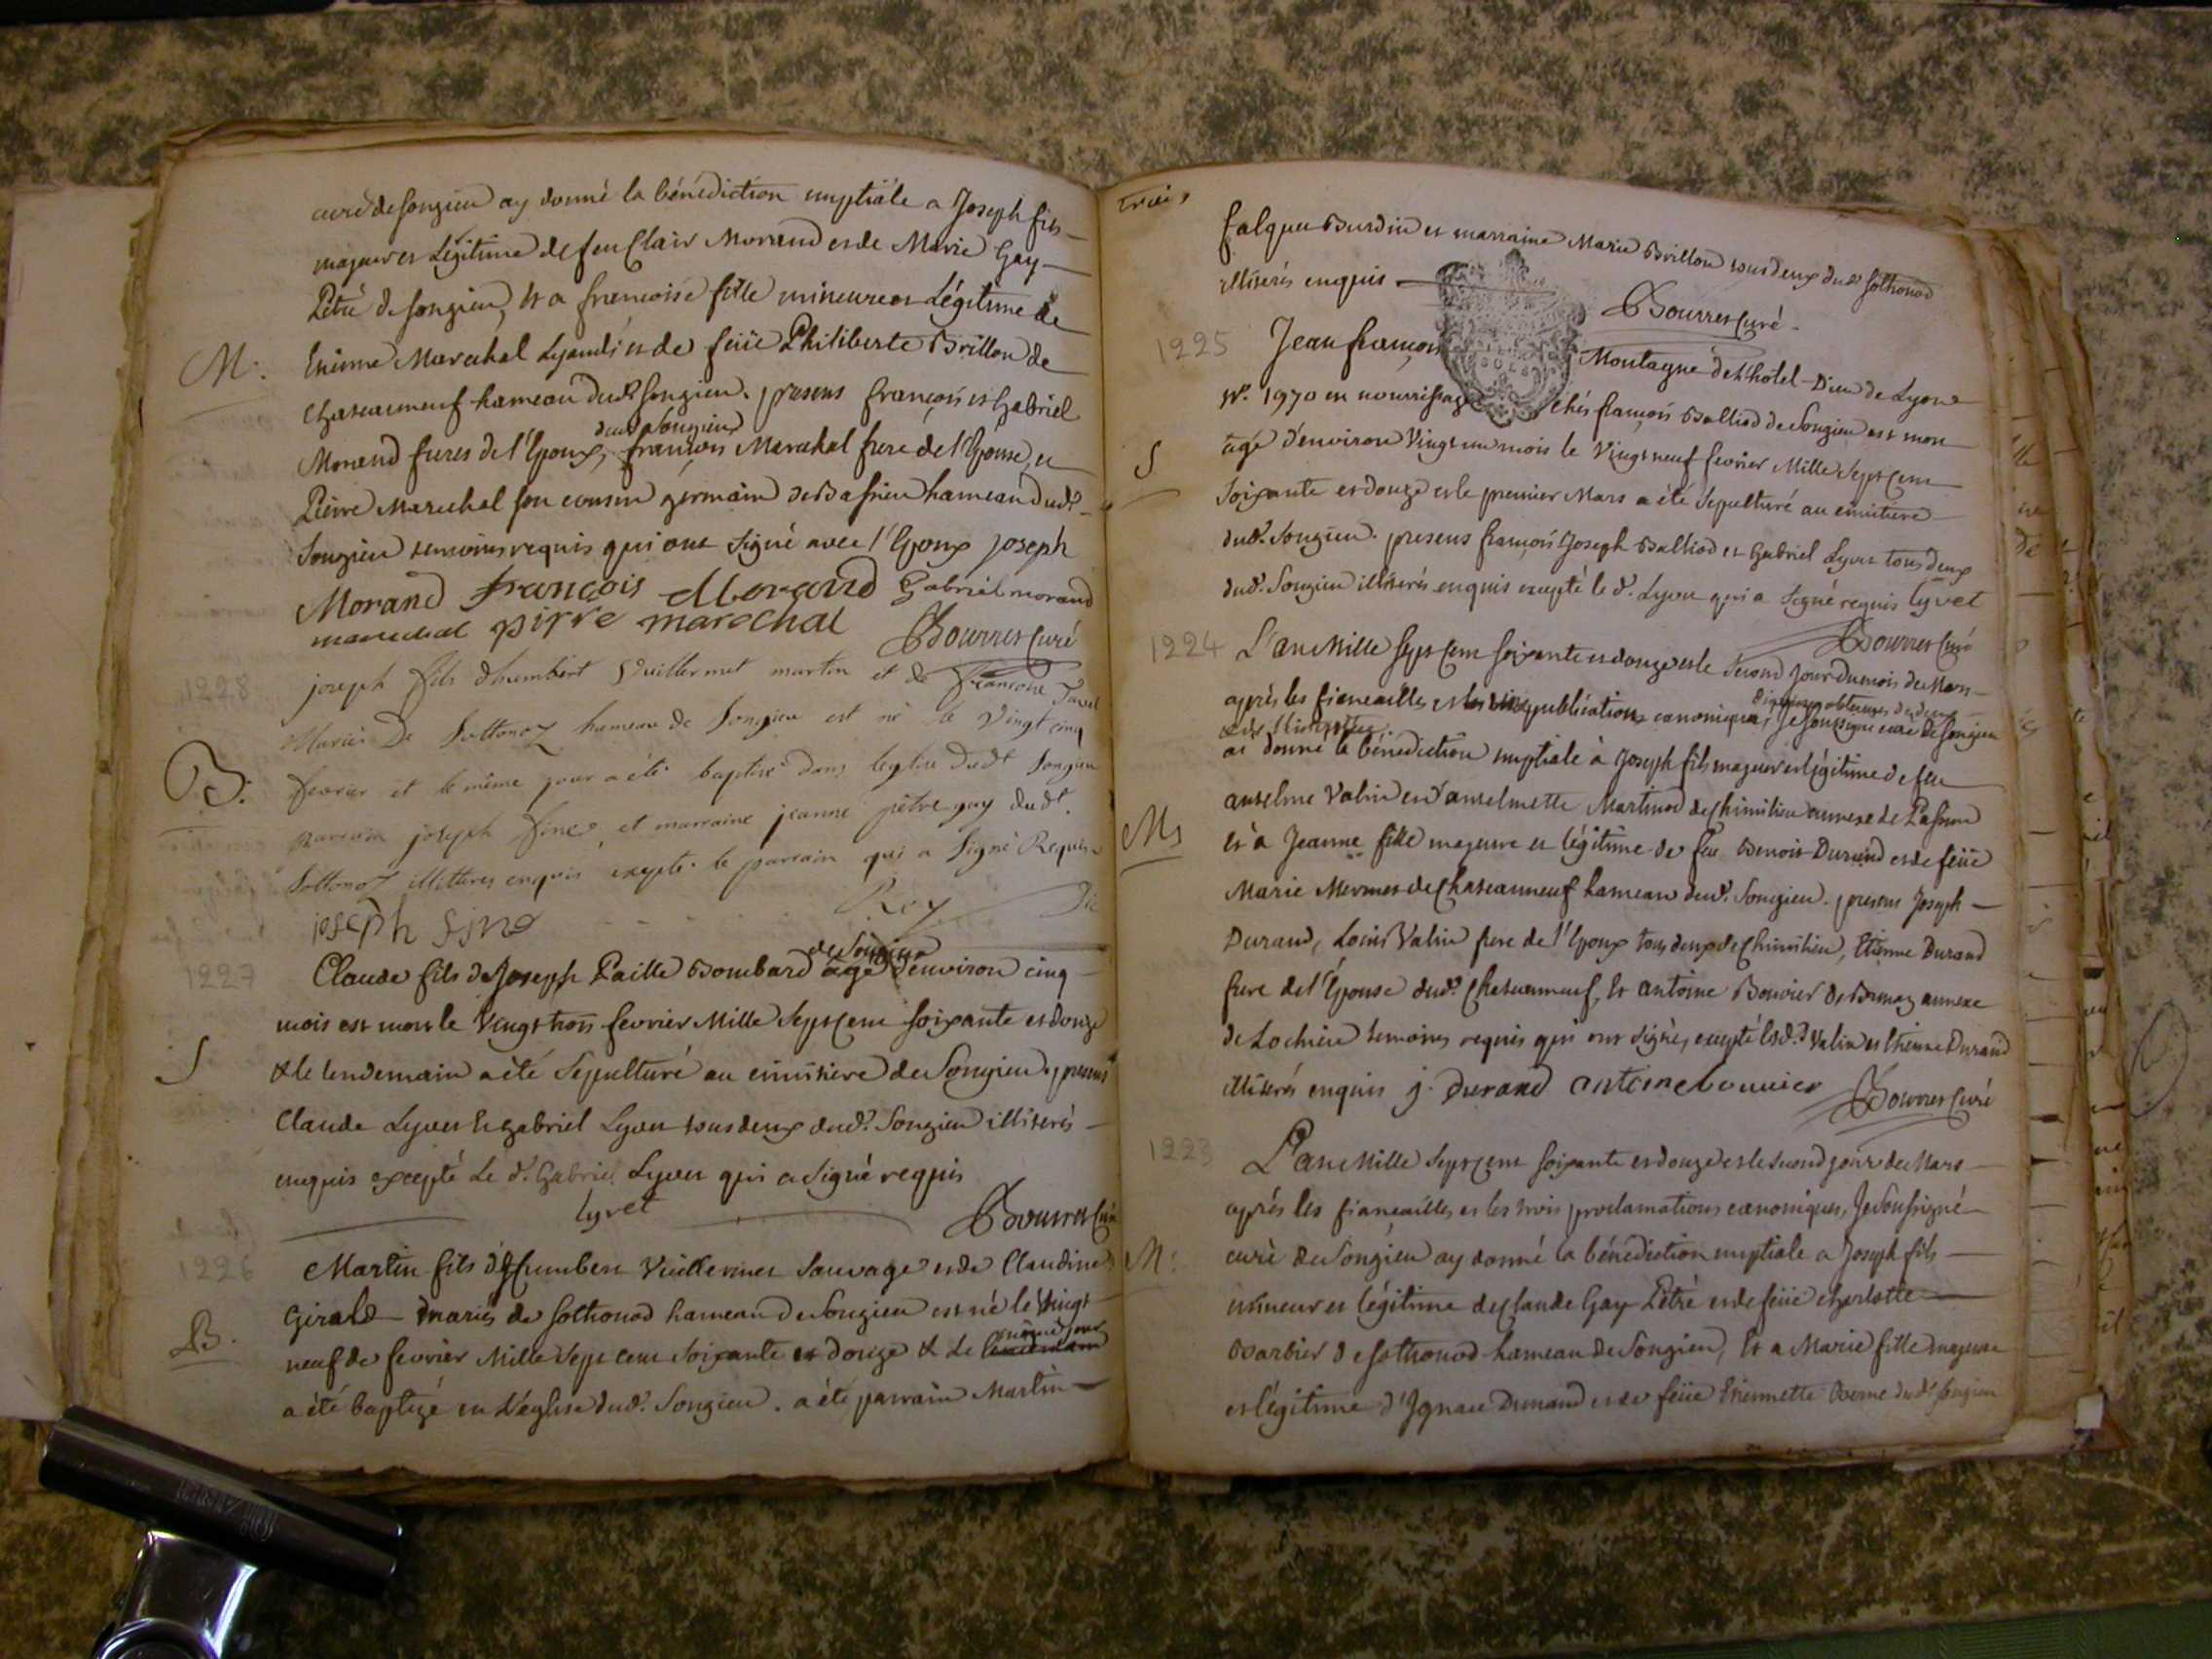 curé de Songieu ay donné la bénédiction nuptiale a Joseph fils
majeur et Légitime de feu Clair Morand et de Marie Gay
Pétré de Songieu, Et a francoise fille mineure et Légitime de
Etienne Marechal Lyaudi et de feüe Philiberte Brillon de
Chateauneuf hameau dud. Songieu. presens françois et Gabriel
dud. Songieu
Morand freres de l'Epoux, françois Marechal frere de l'Epouse, et
Pierre Marechal son cousin germain de hameau dud.
Songieu temoins requis qui ont signé avec l'Epoux joseph
Morand françois Morand Gabriel morand
marechal pirre marechal Bourret Curé
1228 joseph fils dhumbert Vuillermet martin et de francoise Tavel
M:
Mariés De Sottonoz hameau de Songieu est né le Vingt cinq
B.
fevrier et le même jour a été baptisé dans leglise dudt Songieu
parrain joseph fine et marraine jeanne pétre gay dudt.
Sottonoz illitteres enquis excepté le parrain qui a signé Requis
joseph fine Roy Vic
de Songieu
1227 Claude fils de Joseph Paille Bombard agé d'environ cinq
mois est mort le Vingt trois fevrier Mille Sept Cent soixante et douze
S
& le lendemain a été Sepulturé au cimitiere de Songieu. presens
Claude Lyvet et gabriel Lyvet tous deux dud. Songieu illiterés
enquis excepté Le d. Gabriel Lyvet qui a signé requis
lyvet Bourret Curé
1226 Martin fils d'humbert Vuillermet Sauvage et de Claudine
Girald mariés de Sothonod hameau de Songieu est né le Vingt
même jour
B.
neuf de fevrier Mille Sept cent Soixante et douze & le lendemain
a été baptizé en L'église dud. Songieu. a été parrain Martin
trois
falque Burdin et marraine Marie Brillon tous deux dud. Sothonod
illiterés enquis
Bourret Curé
1225 Jean françois Montagne de L'hotel-Dieu de Lyon
N°. 1970 en nourrissage chés françois Balliod de Songieu est mort
S
agé d'environ Vingt un mois le Vingt neuf fevrier Mille Sept Cent
Soixante et douze et le premier Mars a été Sepulturé au cimitiere
dud. Songieu. presens françois Joseph Balliod et Gabriel Lyvet tous deux
dud. Songieu illiterés enquis excepté le d. Lyvet qui a signé requis lyvet
Bourret Curé
1224 L'an Mille Sept Cent soixante et douze et le second jour du mois de Mars
aprés les fiancailles et publication canonique, Je soussigné curé de Songieu
ai donné la bénédiction nuptiale à Joseph fils majeur et légitime de feu
anselme Valin et d'anselmette Martinod de Chimilieu annexe de
M
et a Jeanne fille majeure et légitime de feu Benoit Durand et de feüe
Marie Mermet de Chateauneuf hameau dud. Songieu. presens Joseph
Durand, Louis Valin frere de l'Epoux tous deux de Chimilieu, Etienne Durand
frere de l'Epouse dud. Chateauneuf, Et antoine Bouvier de annexe
de Lochieu temoins requis qui ont signés, excepté lesd. Valin et Etienne Durand
illiterés enquis j. Durand antoine bouvier Bourret Curé
1223 L'an Mille Sept Cent soixante et douze et le second jour de Mars
aprés les fiancailles et les trois proclamations canoniques, Je soussigné
M:
curé de Songieu ay donné la bénédiction nuptiale a Joseph fils
mineur et légitime de Claude Gay Pétré et de feüe charlotte
Barbier de Sothonod hameau de Songieu, Et a Marie fille majeure
et légitime d'Ignace Dunand et de feüe Etiennette dudt Songieu